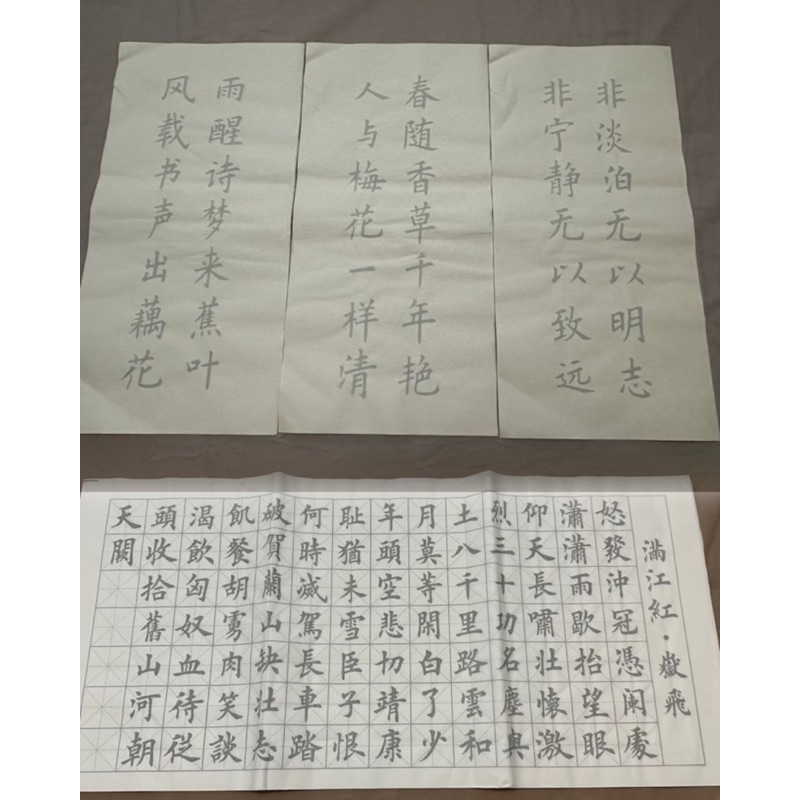 非淡泊无以明志
非宁静无以致远
春随香草千年艳
人与梅花一样清
雨醒诗梦来蕉叶
风载书声出藕花
滿江紅·嶽飛
怒發沖冠憑闌處
瀟瀟雨歇抬望眼
仰天長嘯壯懷激
烈三十功名塵與
土八千里路雲和
月莫等閑白了少
年頭空悲切靖康
耻猶未雪臣子恨
何時滅駕長車踏
破賀蘭山缺壯志
飢餐胡虜肉笑談
渴飲匈奴血待從
頭收拾舊山河朝
天闕